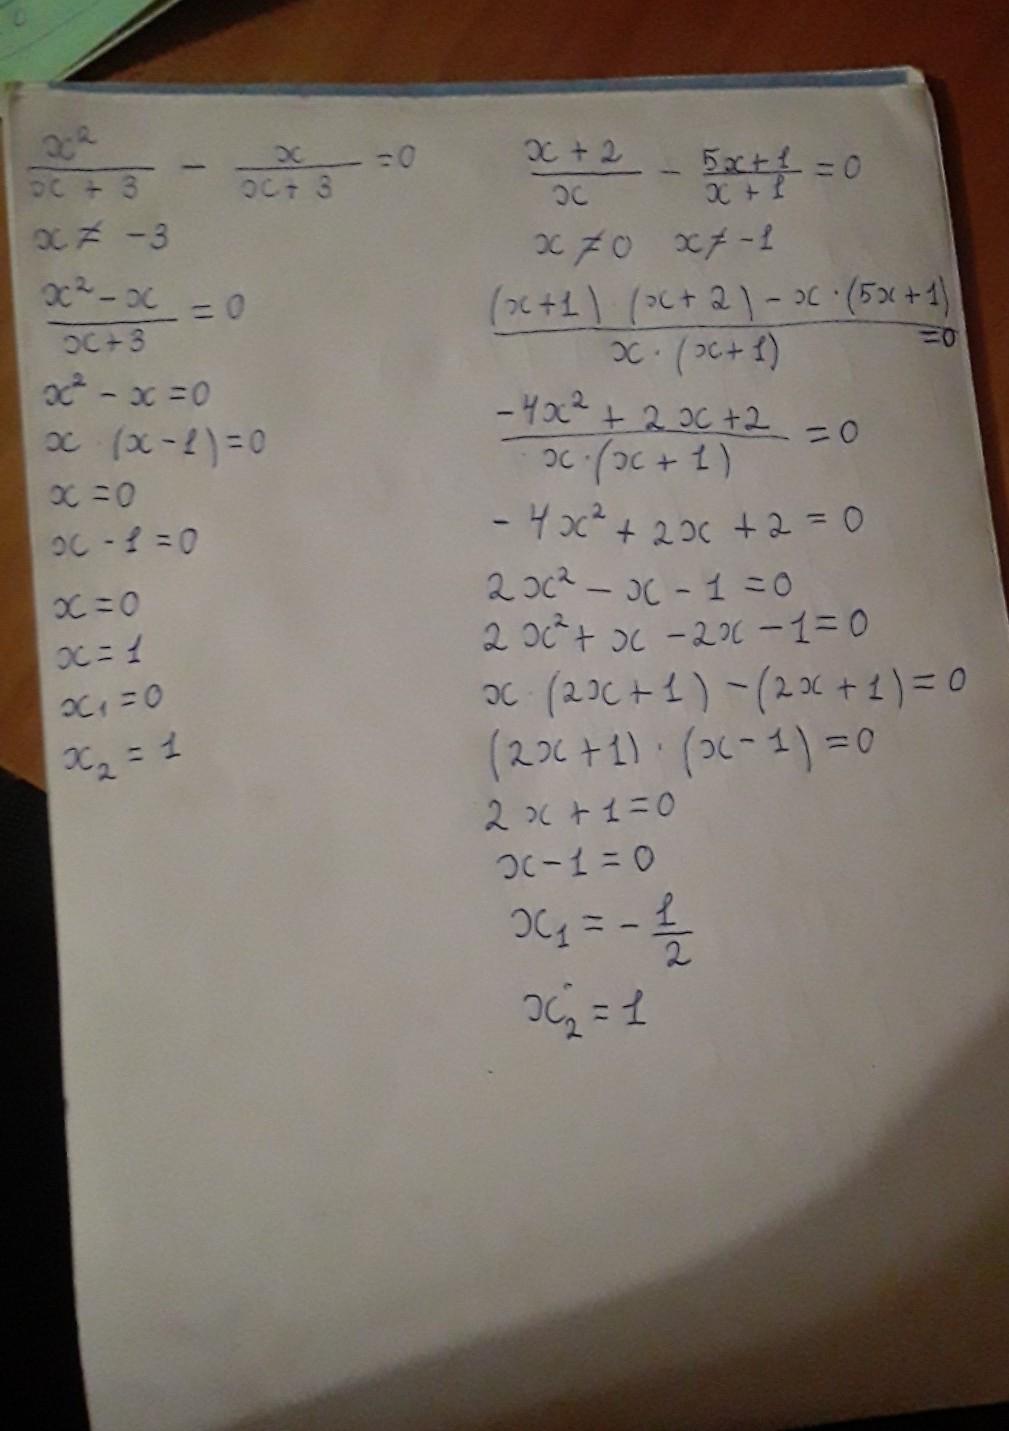 x²/(x + 3) - x/(x + 3) = 0
x ≠ -3
(x² - x)/(x + 3) = 0
x² - x = 0
x · (x - 1) = 0
x = 0
x - 1 = 0
x = 0
x = 1
x₁ = 0
x₂ = 1
(x + 2)/x - (5x + 1)/(x + 1) = 0
x ≠ 0 x ≠ -1
((x + 1) · (x + 2) - x · (5x + 1))/(x · (x + 1)) = 0
(-4x² + 2x + 2)/(x · (x + 1)) = 0
-4x² + 2x + 2 = 0
2x² - x - 1 = 0
2x² + x - 2x - 1 = 0
x · (2x + 1) - (2x + 1) = 0
(2x + 1) · (x - 1) = 0
2x + 1 = 0
x - 1 = 0
x₁ = -1/2
x₂ = 1